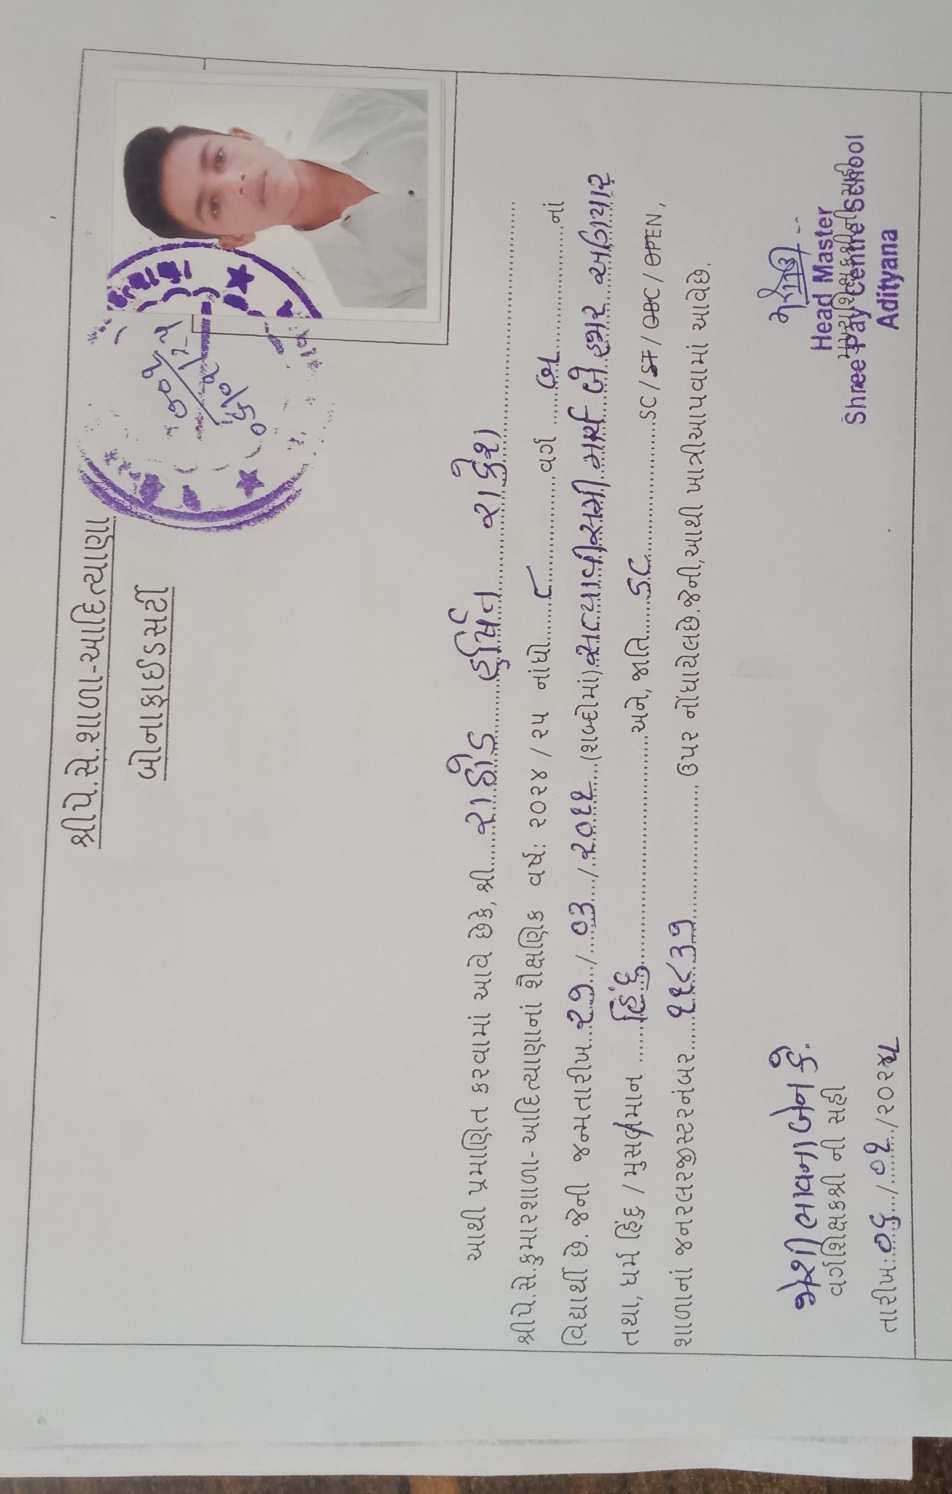 શ્રીપે.સે.શાળા-આદિત્યાણા
બોનાફાઈડસર્ટી
આથી પ્રમાણિત કરવામાં આવે છેકે, શ્રી....રાઠોડ હર્ષિત રાકેશ
શ્રીપે.સે.કુમારશાળા- આદિત્યાણાનાં શૈક્ષણિક વર્ષ: ૨૦૨૪ / ૨૫ નાંધો.....૮.....વર્ગ.....બ.....નાં
વિદ્યાર્થી છે. જેની જન્મતારીખ...૨૭.../...૦૩.../...૨૦૧૧...(શબ્દોમાં) સત્યાવીસમી માર્ચ બે હજાર અગિયાર
તથા, ધર્મ હિંદુ / મુસલમાન .....હિંદુ.....અને, જાતિ.....SC.....SC / ST / OBC / OPEN,
શાળાનાં જનરલરજીસ્ટરનંબર.....૧૧૮૩૭..... ઉપર નોંધાયેલછે.જેની,આથી ખાત્રીઆપવામાં આવેછે.
જોશી ભાવનાબેન કે.
વર્ગશિક્ષકશ્રી ની સહી
તારીખ:૦૬.../...૦૧.../૨૦૨૫
Head Master
Shree Pay Centre School
Adityana